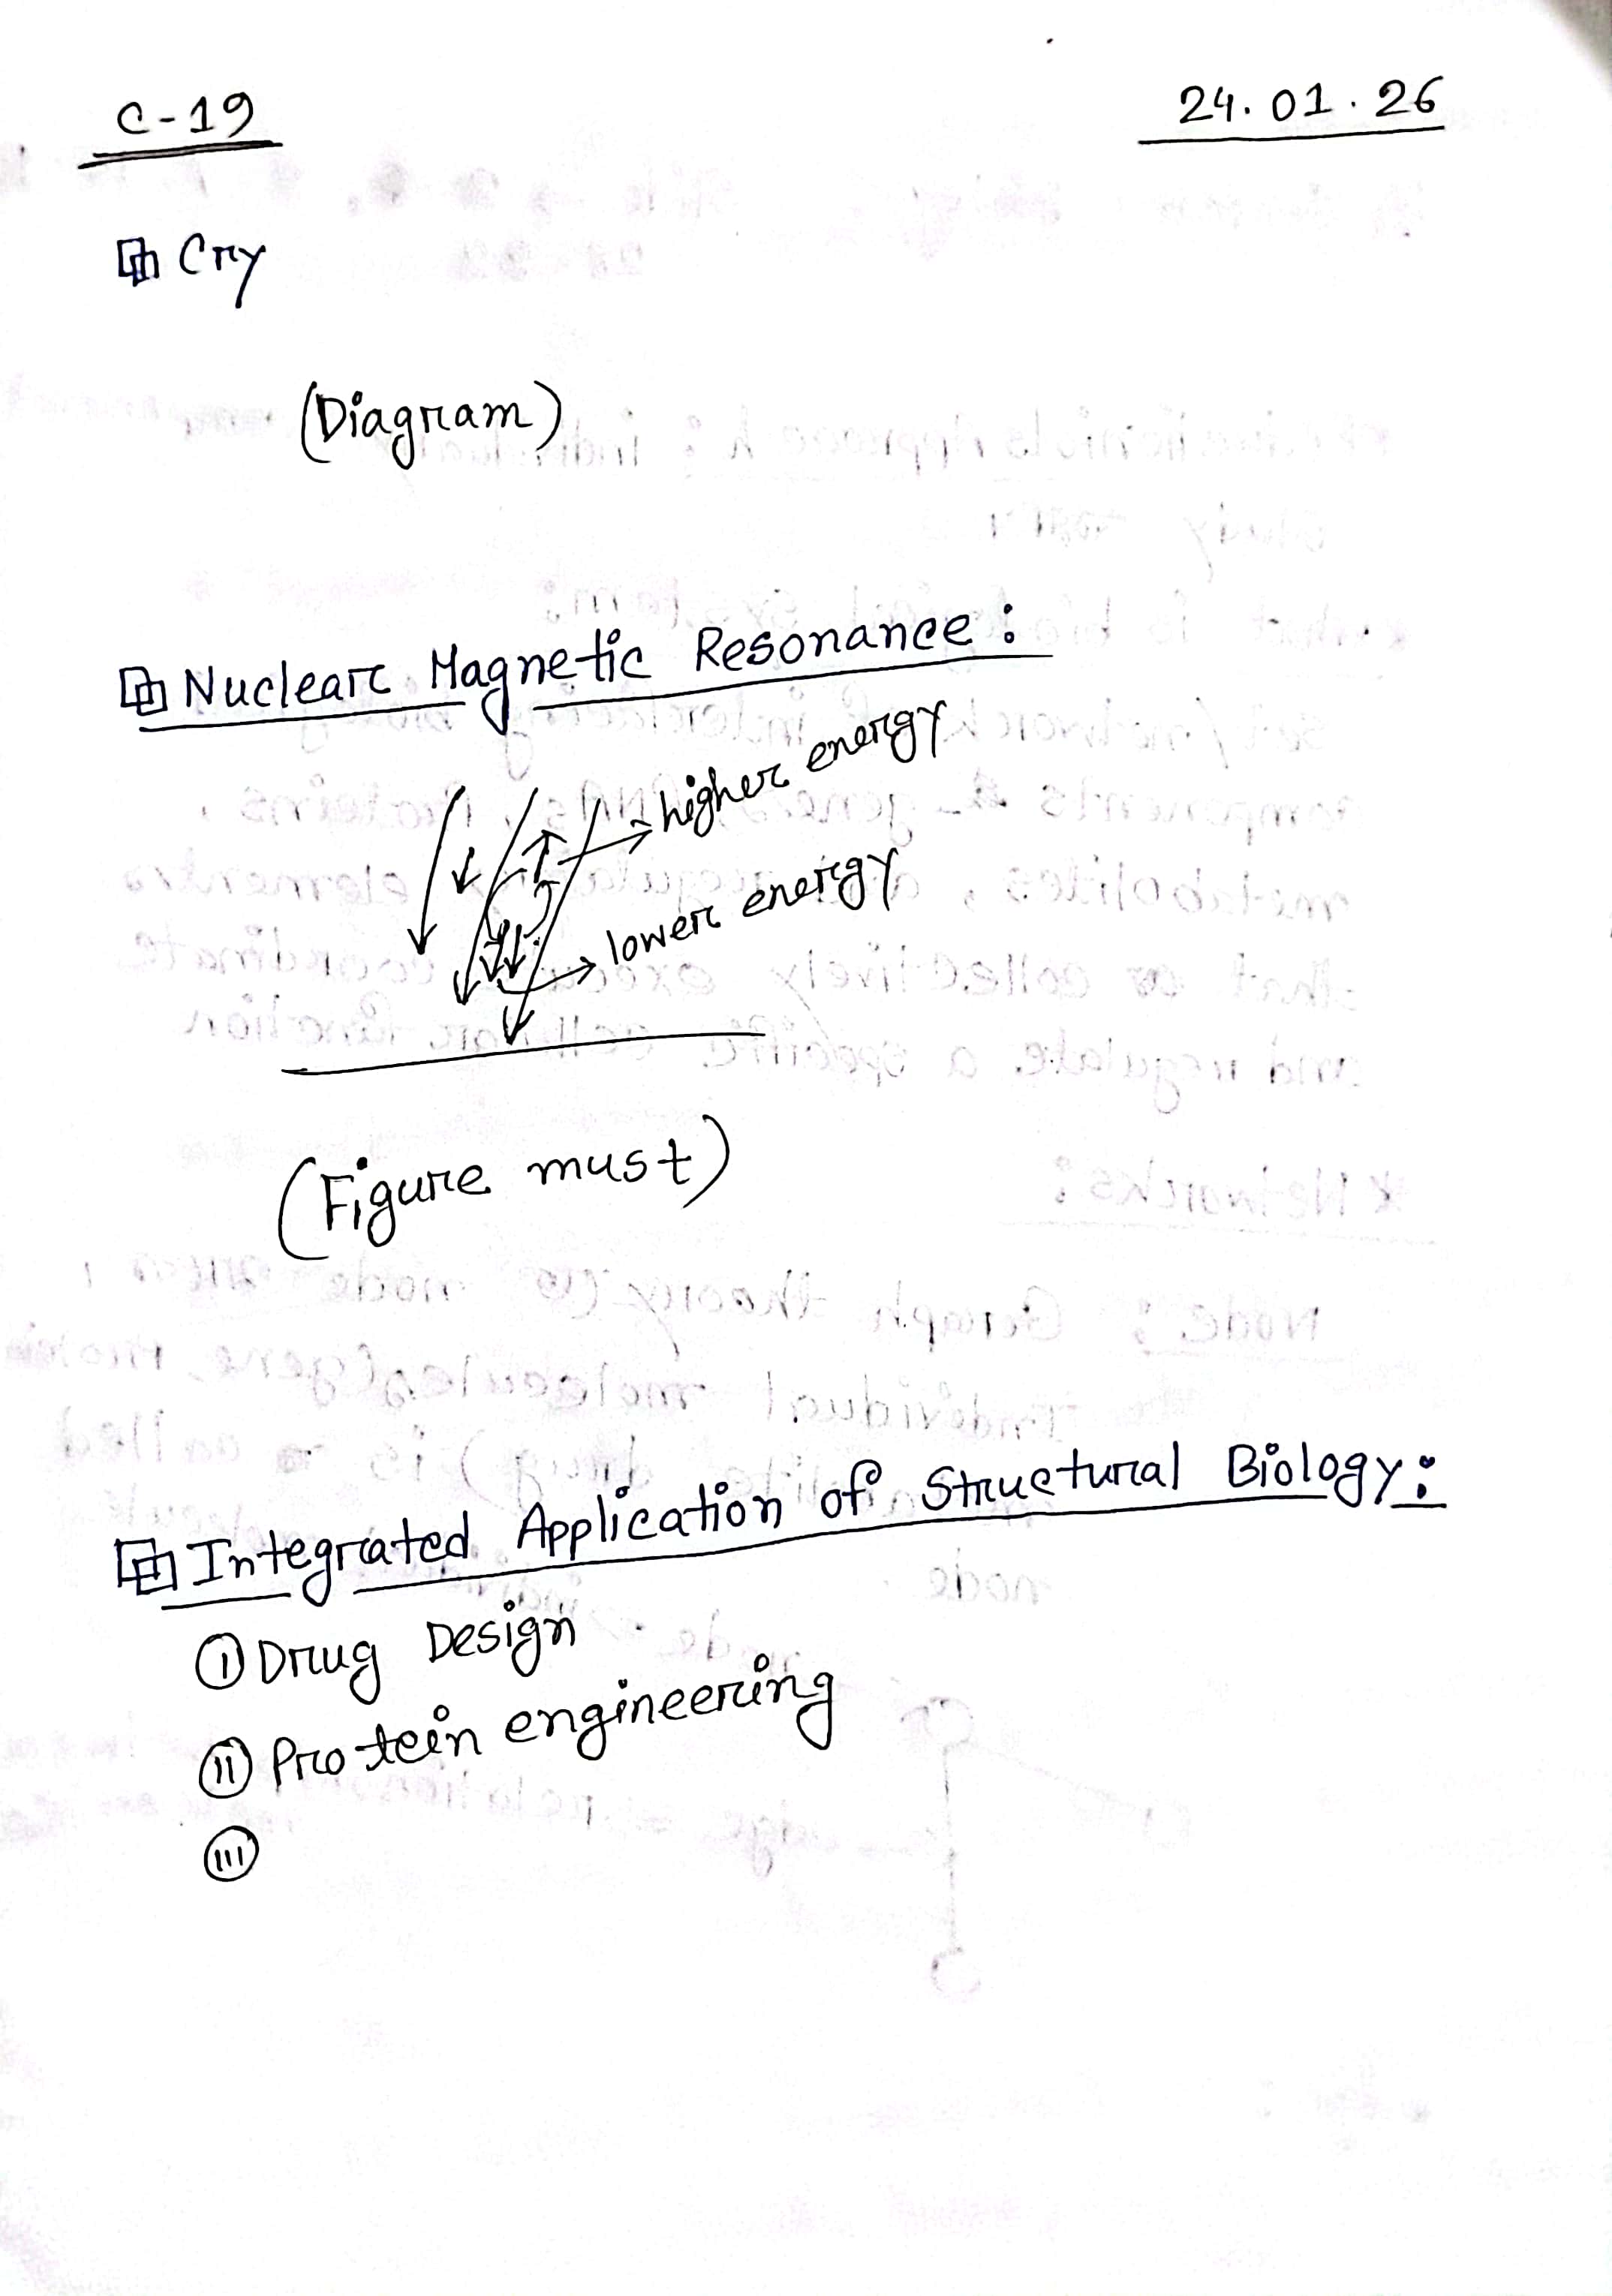 C-19
24.01.26
Cry
(Diagram)
Nuclear Magnetic Resonance:
higher energy
lower energy
(Figure must)
Integrated Application of Structural Biology:
(i) Drug Design
(ii) Protein engineering
(iii)